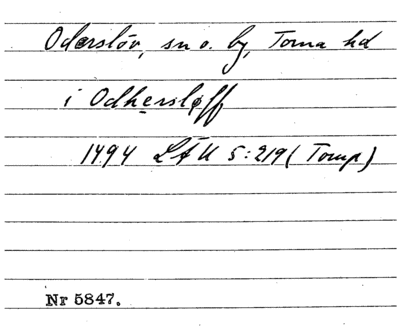 Oderslöv, sn o. by, Torna hd
i Odhersløff
1494 LÄU 5:219 (Tomp)
Nr 5847.